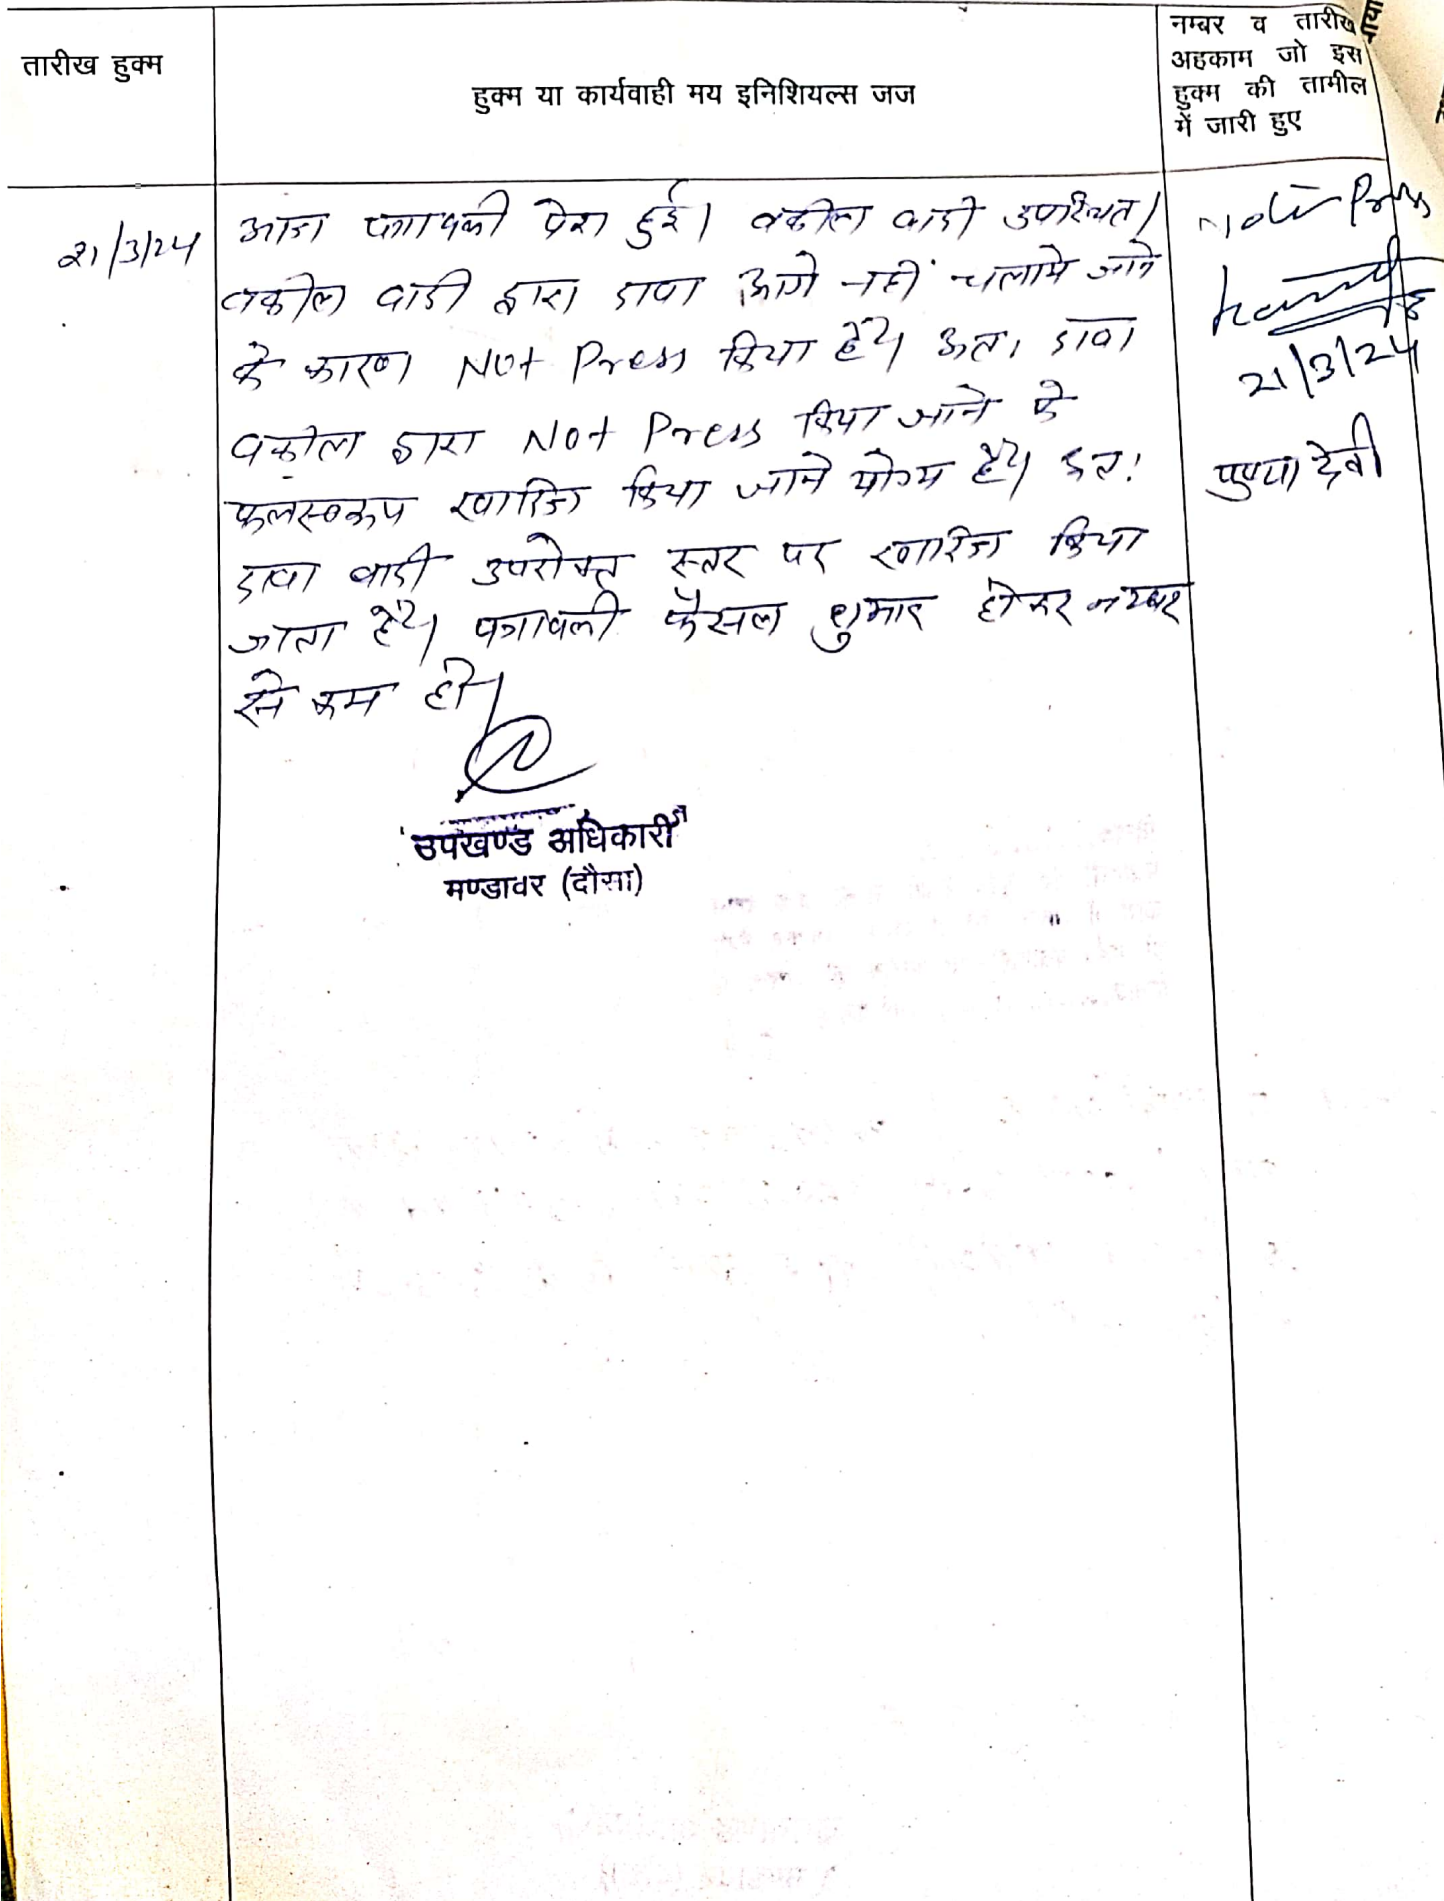 तारीख हुक्म
हुक्म या कार्यवाही मय इनिशियल्स जज
नम्बर व तारीख
अहकाम जो इस
हुक्म की तामील
में जारी हुए
21/3/24
आज पत्रावली पेश हुई। वकील वादी उपस्थित।
वकील वादी द्वारा दावा आगे नहीं चलाये जाने
के कारण Not Press किया है। अतः दावा
वकील द्वारा Not Press किया जाने के
फलस्वरूप खारिज किया जाने योग्य है। अतः
दावा वादी उपरोक्त स्तर पर खारिज किया
जाता है। पत्रावली फैसल शुमार होकर नम्बर
से कम हो।
उपखण्ड अधिकारी
मण्डावर (दौसा)
Not Press
21/3/24
पुष्पा देवी